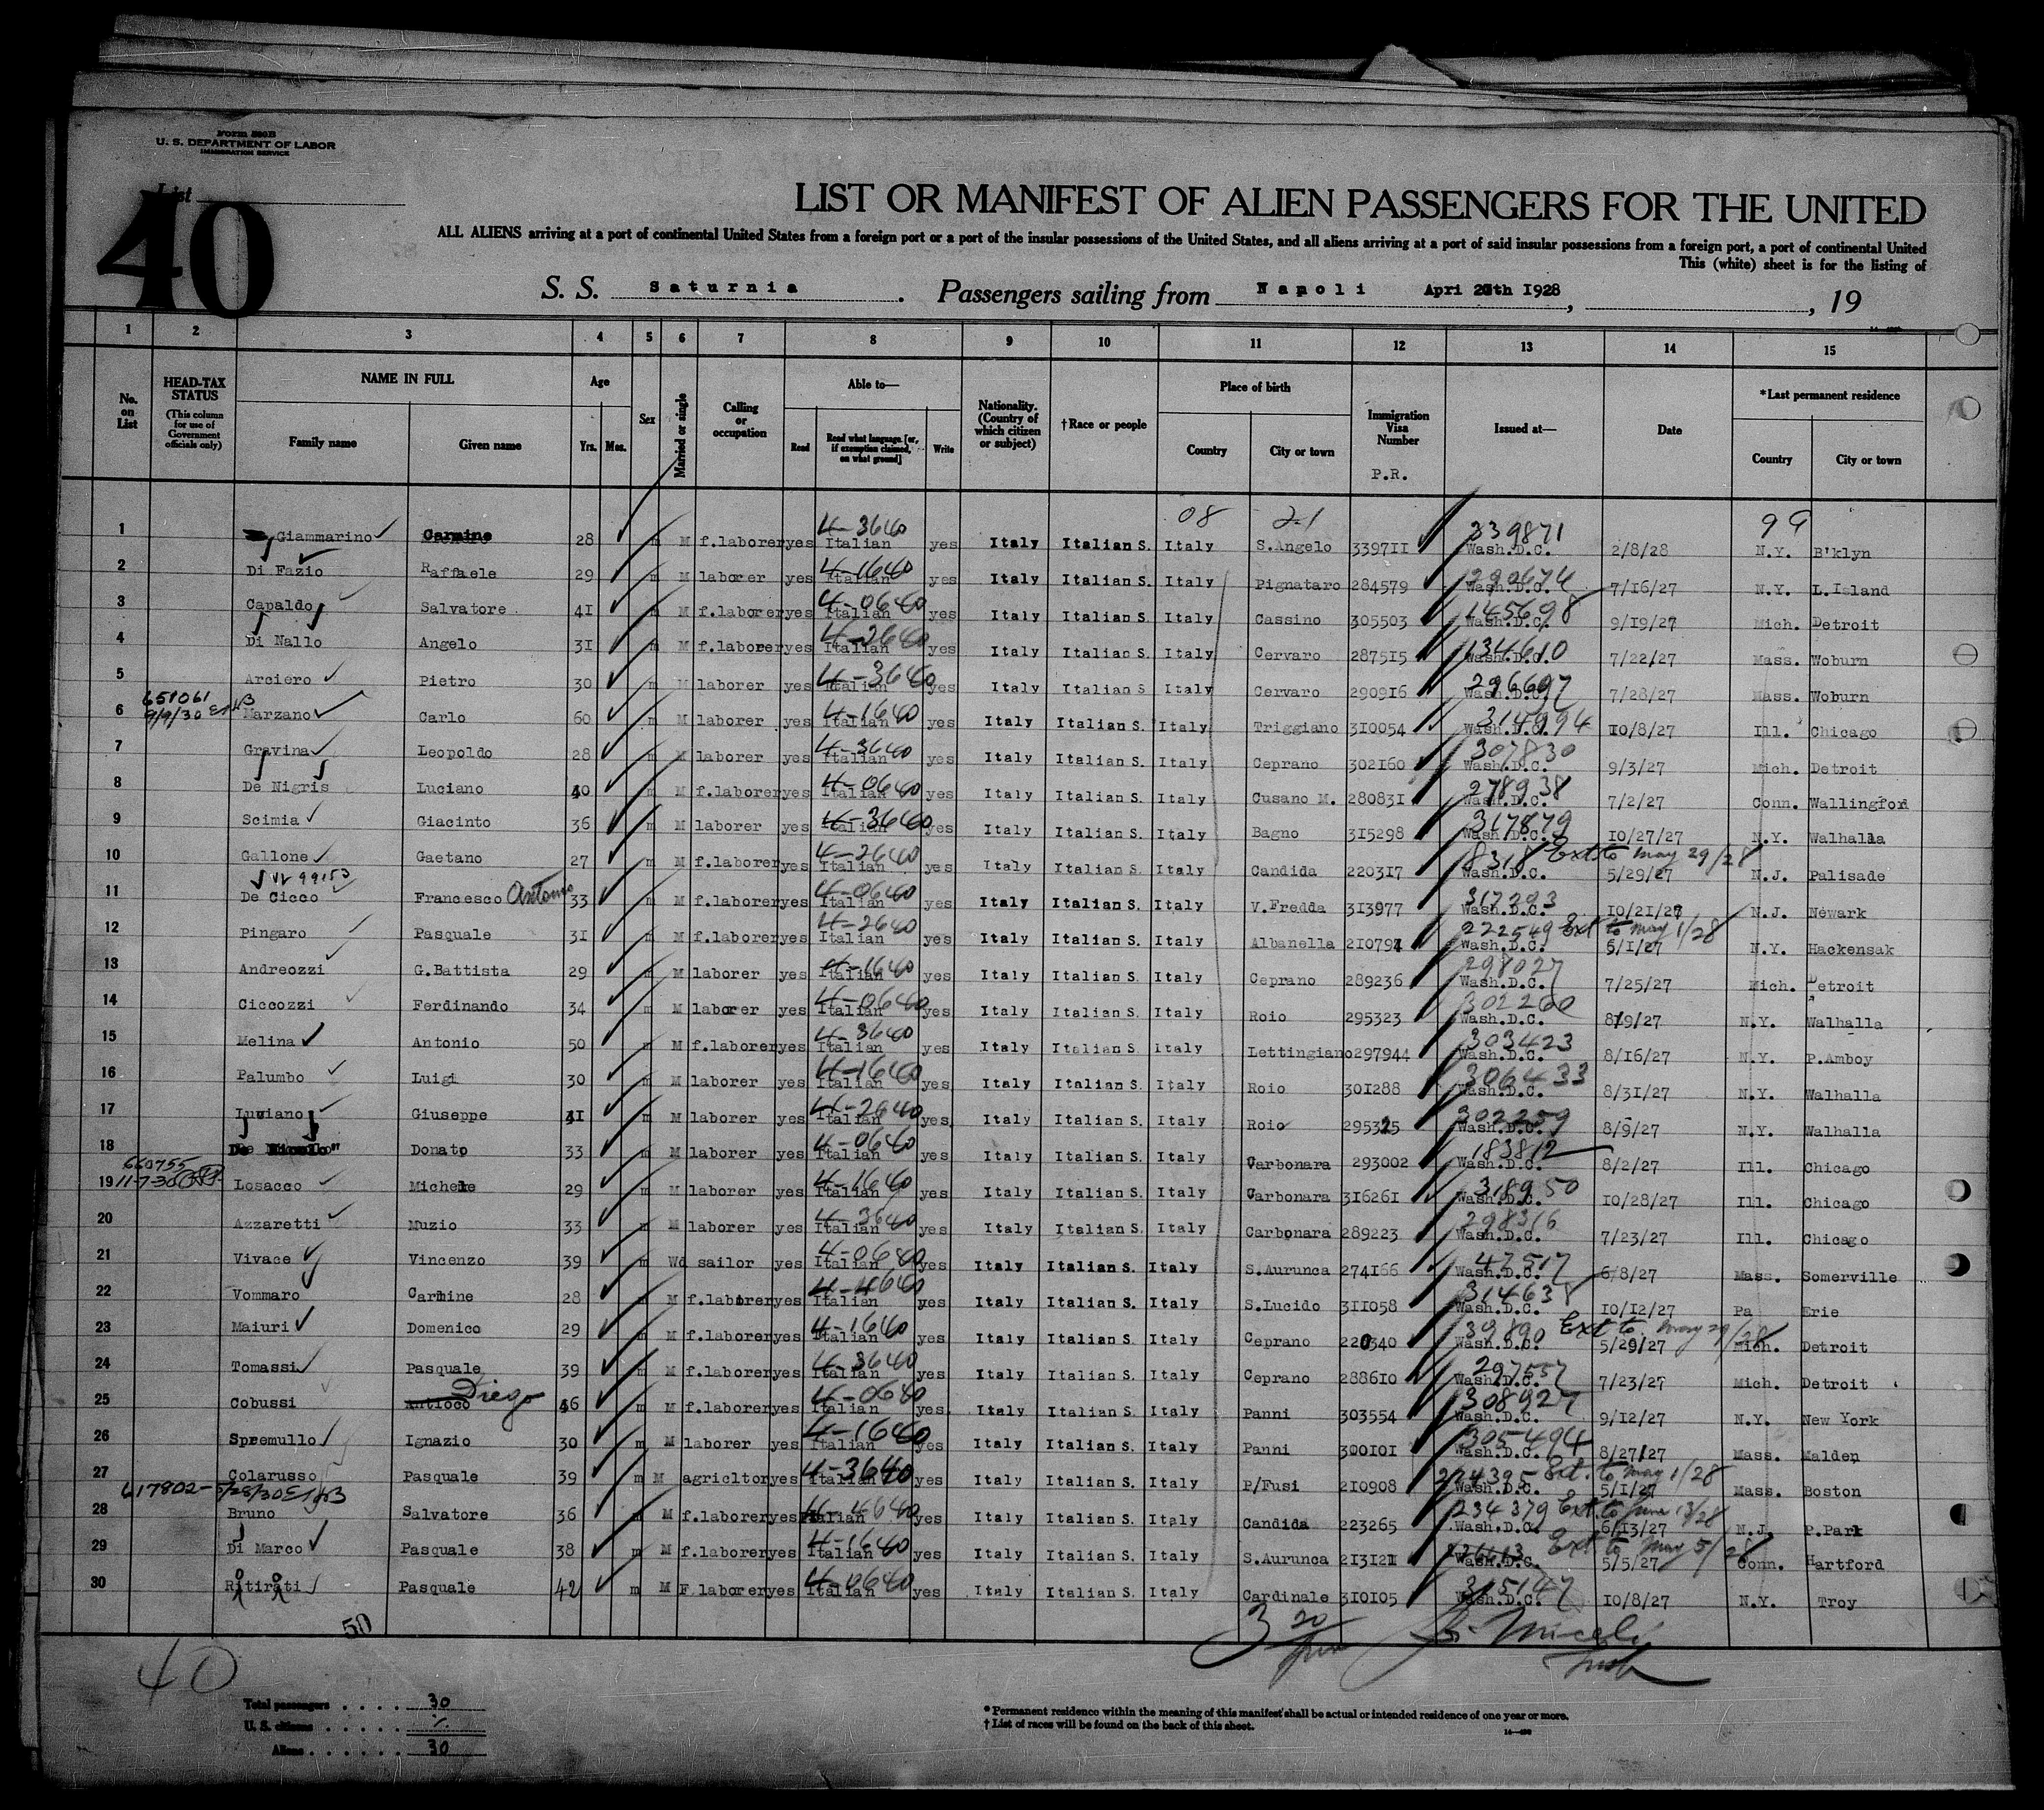 Form 500B
U. S. DEPARTMENT OF LABOR
IMMIGRATION SERVICE
List
40
LIST OR MANIFEST OF ALIEN PASSENGERS FOR THE UNITED
ALL ALIENS arriving at a port of continental United States from a foreign port or a port of the insular possessions of the United States, and all aliens arriving at a port of said insular possessions from a foreign port, a port of continental United
This (white) sheet is for the listing of
S. S. Saturnia. Passengers sailing from Napoli Apri 20th 1928, , 19
1 2 3 4 5 6 7 8 9 10 11 12 13 14 15
No. on List
HEAD-TAX STATUS (This column for use of Government officials only)
NAME IN FULL Family name Given name
Age Yrs. Mos.
Sex
Married or single
Calling or occupation
Able to— Read Read what language [or, if exemption claimed, on what ground] Write
Nationality. (Country of which citizen or subject)
†Race or people
Place of birth Country City or town
Immigration Visa Number P.R.
Issued at—
Date
*Last permanent residence Country City or town
08 2-1 99
4-3640 339871
1 Giammarino Carmine 28 m M f.laborer yes Italian yes Italy Italian S. Italy S.Angelo 339711 Wash.D.C. 2/8/28 N.Y. B'klyn
4-1640 290674
2 Di Fazio Raffaele 29 m M laborer yes Italian yes Italy Italian S. Italy Pignataro 284579 Wash.D.C. 7/16/27 N.Y. L.Island
4-0640 145698
3 Capaldo Salvatore 41 m M f.laborer yes Italian yes Italy Italian S. Italy Cassino 305503 Wash.D.C. 9/19/27 Mich. Detroit
4-2640 134610
4 Di Nallo Angelo 31 m M f.laborer yes Italian yes Italy Italian S. Italy Cervaro 287515 Wash.D.C. 7/22/27 Mass. Woburn
4-3640 296697
5 Arciero Pietro 30 m M laborer yes Italian yes Italy Italian S Italy Cervaro 290916 Wash.D.C. 7/28/27 Mass. Woburn
651061 9/9/30 4-1640 314994
6 Marzano Carlo 60 m M laborer yes Italian yes Italy Italian S. Italy Triggiano 310054 Wash.D.C. 10/8/27 Ill. Chicago
4-3640 307830
7 Gravina Leopoldo 28 m M laborer yes Italian yes Italy Italian S. Italy Ceprano 302160 Wash.D.C. 9/3/27 Mich. Detroit
4-0640 278938
8 De Nigris Luciano 40 m M f.laborer yes Italian yes Italy Italian S. Italy Cusano M. 280831 Wash.D.C. 7/2/27 Conn. Wallingford
4-3640 317879
9 Scimia Giacinto 36 m M laborer yes Italian yes Italy Italian S. Italy Bagno 315298 Wash.D.C. 10/27/27 N.Y. Walhalla
4-2640 8318 Ext to May 29/28
10 Gallone Gaetano 27 m M f.laborer yes Italian yes Italy Italian S. Italy Candida 220317 Wash.D.C. 5/29/27 N.J. Palisade
99153 4-0640 317293
11 De Cicco Francesco Antonio 33 m M f.laborer yes Italian yes Italy Italian S. Italy V.Fredda 313977 Wash.D.C. 10/21/27 N.J. Newark
4-2640 222549 Ext to May 1/28
12 Pingaro Pasquale 31 m M f.laborer yes Italian yes Italy Italian S. Italy Albanella 210797 Wash.D.C. 5/1/27 N.Y. Hackensak
4-1640 298027
13 Andreozzi G.Battista 29 m M laborer yes Italian yes Italy Italian S. Italy Ceprano 289236 Wash.D.C. 7/25/27 Mich. Detroit
4-0640 302260
14 Ciccozzi Ferdinando 34 m M laborer yes Italian yes Italy Italian S. Italy Roio 295323 Wash.D.C. 8/9/27 N.Y. Walhalla
4-3640 303423
15 Melina Antonio 50 m M f.laborer yes Italian yes Italy Italian S Italy Lettingiano 297944 Wash.D.C. 8/16/27 N.Y. P.Amboy
4-1640 306433
16 Palumbo Luigi 30 m M laborer yes Italian yes Italy Italian S. Italy Roio 301288 Wash.D.C. 8/31/27 N.Y. Walhalla
4-2640 302259
17 Luviano Giuseppe 41 m M laborer yes Italian yes Italy Italian S. Italy Roio 295325 Wash.D.C. 8/9/27 N.Y. Walhalla
4-0640 183812
18 De Donato 33 m M laborer yes Italian yes Italy Italian S. Italy Carbonara 293002 Wash.D.C. 8/2/27 Ill. Chicago
660755 11-7-30 4-1640 318950
19 Losacco Michele 29 m M laborer yes Italian yes Italy Italian S. Italy Carbonara 316261 Wash.D.C. 10/28/27 Ill. Chicago
4-3640 298316
20 Azzaretti Muzio 33 m M laborer yes Italian yes Italy Italian S. Italy Carbonara 289223 Wash.D.C. 7/23/27 Ill. Chicago
4-0640 47517
21 Vivace Vincenzo 39 m Wd sailor yes Italian yes Italy Italian S. Italy S.Aurunca 274166 Wash.D.C. 6/8/27 Mass. Somerville
4-4640 314638
22 Vommaro Carmine 28 m M f.laborer yes Italian yes Italy Italian S. Italy S.Lucido 311058 Wash.D.C. 10/12/27 Pa Erie
4-1640 39890 Ext to May 29/28
23 Maiuri Domenico 29 m M f.laborer yes Italian yes Italy Italian S. Italy Ceprano 220340 Wash.D.C. 5/29/27 Mich. Detroit
4-3640 297557
24 Tomassi Pasquale 39 m M f.laborer yes Italian yes Italy Italian S. Italy Ceprano 288610 Wash.D.C. 7/23/27 Mich. Detroit
Diego 4-0640 308927
25 Cobussi Antioco 46 m M f.laborer yes Italian yes. Italy Italian S. Italy Panni 303554 Wash.D.C. 9/12/27 N.Y. New York
4-1640 305494
26 Spremullo Ignazio 30 m M laborer yes Italian yes Italy Italian S. Italy Panni 300101 Wash.D.C. 8/27/27 Mass. Malden
4-3640 224395 Ext. to May 1/28
27 Colarusso Pasquale 39 m M agricltor yes Italian yes Italy Italian S. Italy P/Fusi 210908 Wash.D.C. 5/1/27 Mass. Boston
617802- 5/28/30 4-4640 234379 Ext. to June 13/28
28 Bruno Salvatore 36 m M f.laborer yes Italian yes Italy Italian S. Italy Candida 223265 Wash.D.C. 6/13/27 N.J. P.Park
4-1640 Ext to May 5/28
29 Di Marco Pasquale 38 m M f.laborer yes Italian yes Italy Italian S. Italy S.Aurunca 213121 Wash.D.C. 5/5/27 Conn. Hartford
4-0640 315147
30 Ritirati Pasquale 42 m M F.laborer yes Italian yes Italy Italian S. Italy Cardinale 310105 Wash.D.C. 10/8/27 N.Y. Troy
50
3 20 Miceli
40
Total passengers . . . . . 30
U. S. citizens . . . . .
Aliens . . . . . . 30
*Permanent residence within the meaning of this manifest shall be actual or intended residence of one year or more.
†List of races will be found on the back of this sheet.